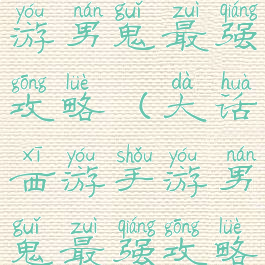 yóu nán guǐ zuì qiáng
游男鬼最强
gōng lüè dà huà
攻略(大话
xī yóu shǒu yóu nán
西游手游男
guǐ zuì qiáng gōng lüè
鬼最强攻略